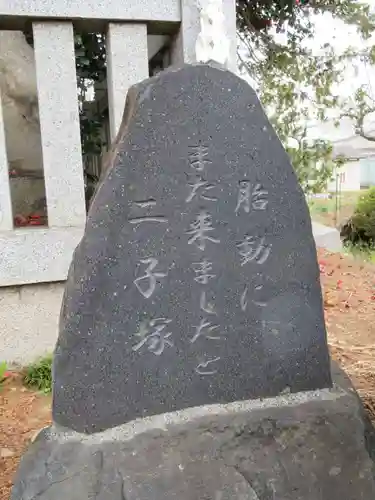 胎動に
また来ましたと
二子塚